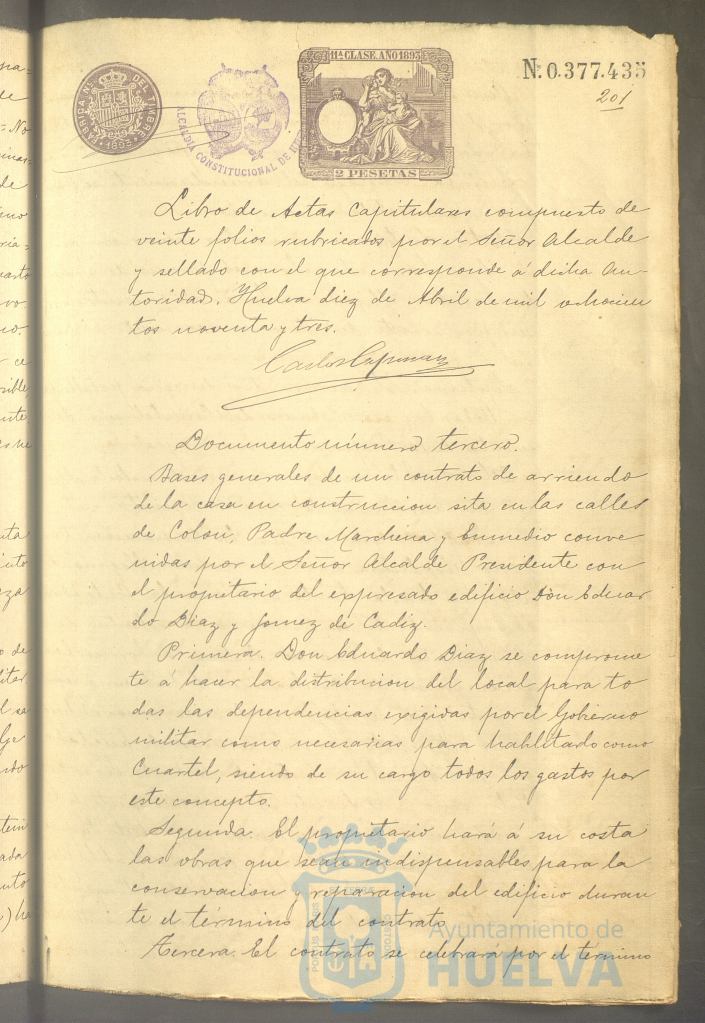 FABRICA NAL. DEL TIMBRE
1893
ALCALDÍA CONSTITUCIONAL DE
11ª CLASE. AÑO 1893
2 PESETAS
Nº 0.377.435
201
Libro de Actas Capitulares compuesto de
veinte folios rubricados por el Señor Alcalde
y sellado con el que corresponde á dicha Au-
toridad. Huelva diez de Abril de mil ochocien
tos noventa y tres.
Carlos
Documento número tercero.
Bases generales de un contrato de arriendo
de la casa en construccion sita en las calles
de Colon, Padre Marchena y Enmedio conve
nidas por el Señor Alcalde Presidente con
el propietario del expresado edificio Don Eduar
do Diaz y Gomez de Cadiz.
Primera. Don Eduardo Diaz se comprome
te á hacer la distribucion del local para to
das las dependencias exigidas por el Gobierno
militar como necesarias para habilitarlo como
Cuartel, siendo de su cargo todos los gastos por
este concepto.
Segunda. El propietario hará á su costa
las obras que sean indispensables para la
conservacion y reparacion del edificio duran
te el término del contrato.
Tercera. El contrato se celebrará por el término
Ayuntamiento de
HUELVA